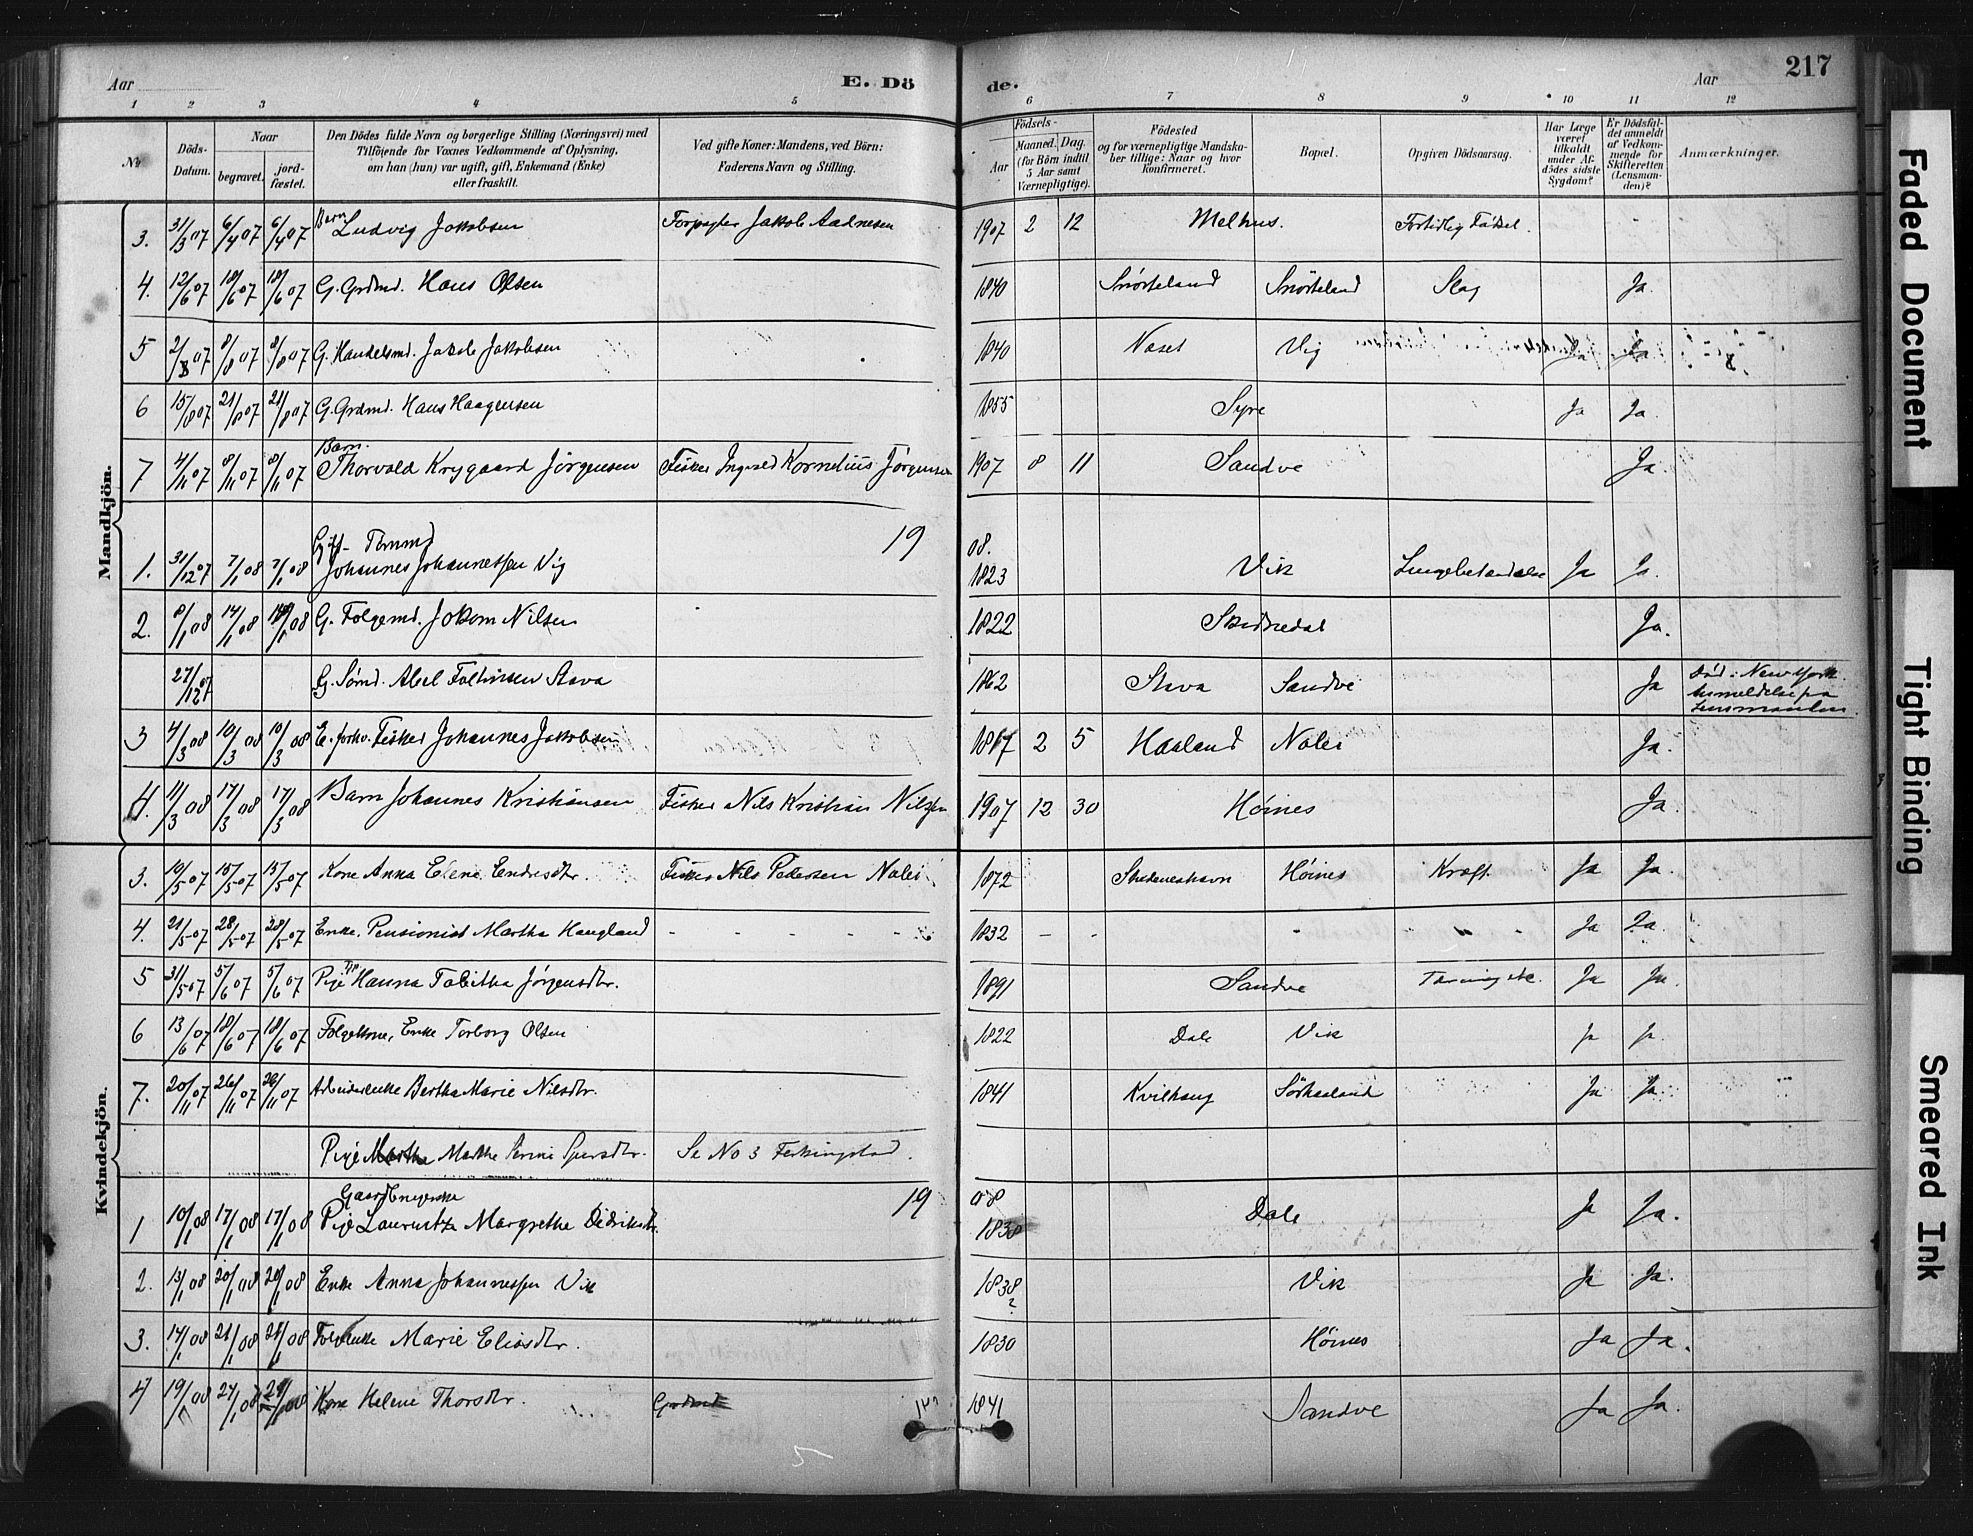 Aar E. Dö de. Aar 217
1 2 3 4 5 6 7 8 9 10 11 12
No Döds-Datum. Naar begravet. jord-fæstet.
Den Dödes fulde Navn og borgerlige Stilling (Næringsvei) med
Tilföiende for Voxnes Vedkommende af Oplysning,
om han (hun) var ugift, gift, Enkemand (Enke)
eller fraskilt.
Ved gifte Koner: Mandens, ved Börn:
Faderens Navn og Stilling.
Födsels-
Aar Maaned. Dag.
(for Börn indtil
5 Aar samt
Værnepligtige).
Födested
og for værnepligtige Mandska-
ber tillige: Naar og hvor
konfirmeret.
Bopæl.
Opgiven Dödsaarsag.
Har Læge
været
tilkaldt
under Af-
dödes sidste
Sygdom?
Er Dödsfal-
det anmeldt
af Vedkom-
mende for
Skifteretten
(Lensman-
den)?
Anmærkninger.
Mandkjön.
3. 31/3 07 6/4 07 6/4 07 Barn Ludvig Jakobsen Forpagter Jakob Aadnesen 1907 2 12 Melhus. Fortidlig Fødsel
4. 12/6 07 18/6 07 18/6 07 G. Grdmd. Hans Olsen 1840 Snørteland Snørteland Slag Ja.
5 2/8 07 8/8 07 8/8 07 G. Handelsmd. Jakob Jakobsen 1840 Næset Vig Ja Ja
6 15/8 07 21/8 07 21/8 07 G. Grdmd. Hans Haagensen 1855 Syre Ja Ja.
7 4/11 07 8/11 07 8/11 07 Barn. Thorvald Krygaard Jörgensen Fisker Ingvald Kornelius Jørgensen 1907 8 11 Sandve Ja
1908.
1. 31/12 07 7/1 08 7/1 08 Gift Tømmd Johannes Johannessen Vig 1823 Vik Lungebetændelse Ja Ja.
2. 8/1 08 14/1 08 14/1 08 G. Folgemd. Jokom Nilsen 1822 Skudnedal Ja.
27/12 07 G. Sømd. Abel Faltinsen Stava 1862 Stava Sandve Ja Død i New York. Anmeldelse fra Lensmanden.
3 4/3 08 10/3 08 10/3 08 E. forhv. Fisker Johannes Jakobsen 1817 2 5 Haaland Nolei Ja.
4. 11/3 08 17/3 08 17/3 08 Barn Johannes Kristiansen Fisker Nils Kristian Nilsen 1907 12 30 Høines Ja
Kvindekjön.
3. 10/5 07 15/5 07 15/5 07 Kone Anna Elene Endresdtr. Fisker Nils Pedersen Nolei 1872 Skudeneshavn Høines Kræft. Ja Ja.
4. 21/5 07 28/5 07 28/5 07 Enke. Pensionist Martha Haugland - - - - - 1832 - - Ja Ja
5 31/5 07 5/6 07 5/6 07 Pige Hanna Tabitha Jørgensdtr. 1891 Sandve Ja Ja.
6 13/6 07 18/6 07 18/6 07 Folgekone, Enke Torborg Olsen 1822 Dale Vik Ja Ja.
7. 20/11 07 26/11 07 26/11 07 Arbeiderenke Bertha Marie Nilsdtr. 1841 Kvilhaug Sörhaaland Ja Ja.
Pige Martha Serine Sjursdtr. Se No 3 Ferkingstad.
1908
1 10/1 08 17/1 08 17/1 08 Pige Lauritza Margrethe Didriksdtr. 1830 Dale Ja Ja.
2. 13/1 08 20/1 08 20/1 08 Enke Anna Johannessen Vik 1838? Vik Ja Ja.
3. 14/1 08 21/1 08 21/1 08 Marie Eliasdtr. 1830 Høines Ja Ja.
4 19/1 08 27/1 08 Kone Helene Thorsdtr. 1841 Sandve Ja Ja.
Faded Document
Tight Binding
Smeared Ink